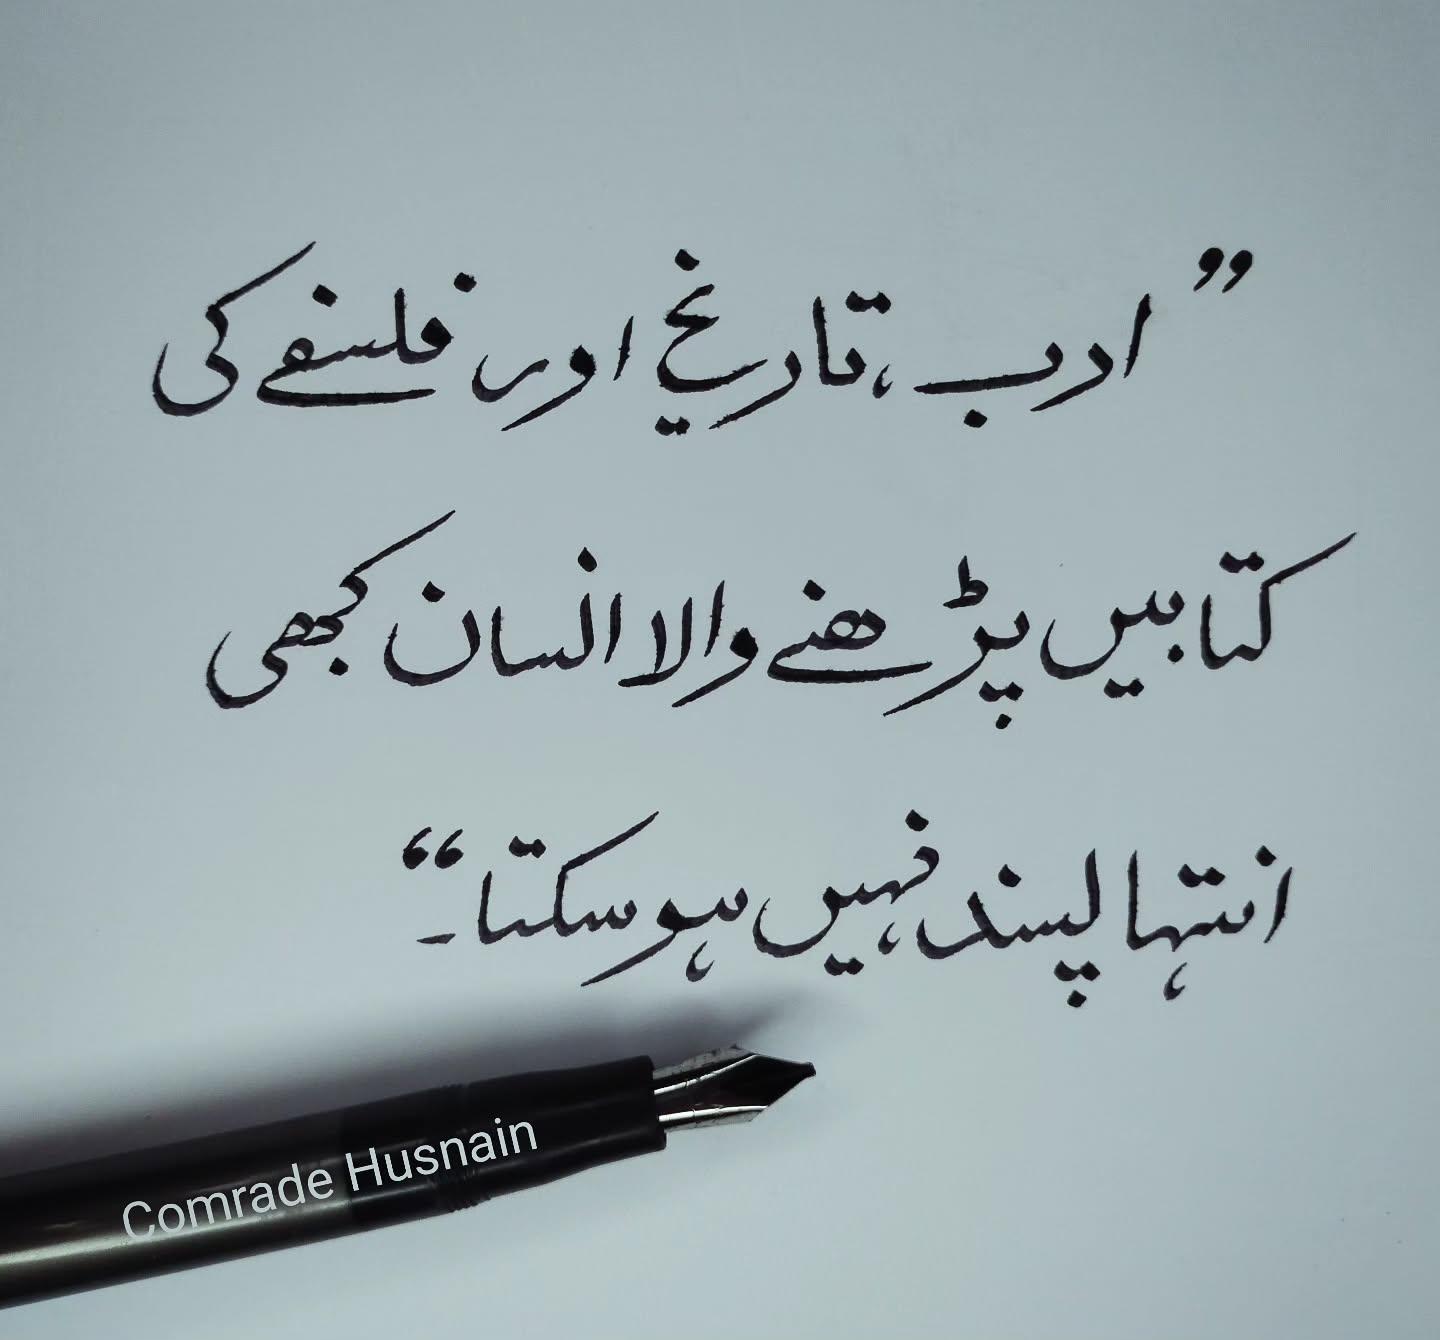 ”ادب، تاریخ اور فلسفے کی
کتابیں پڑھنے والا انسان کبھی
انتہا پسند نہیں ہو سکتا۔“
Comrade Husnain